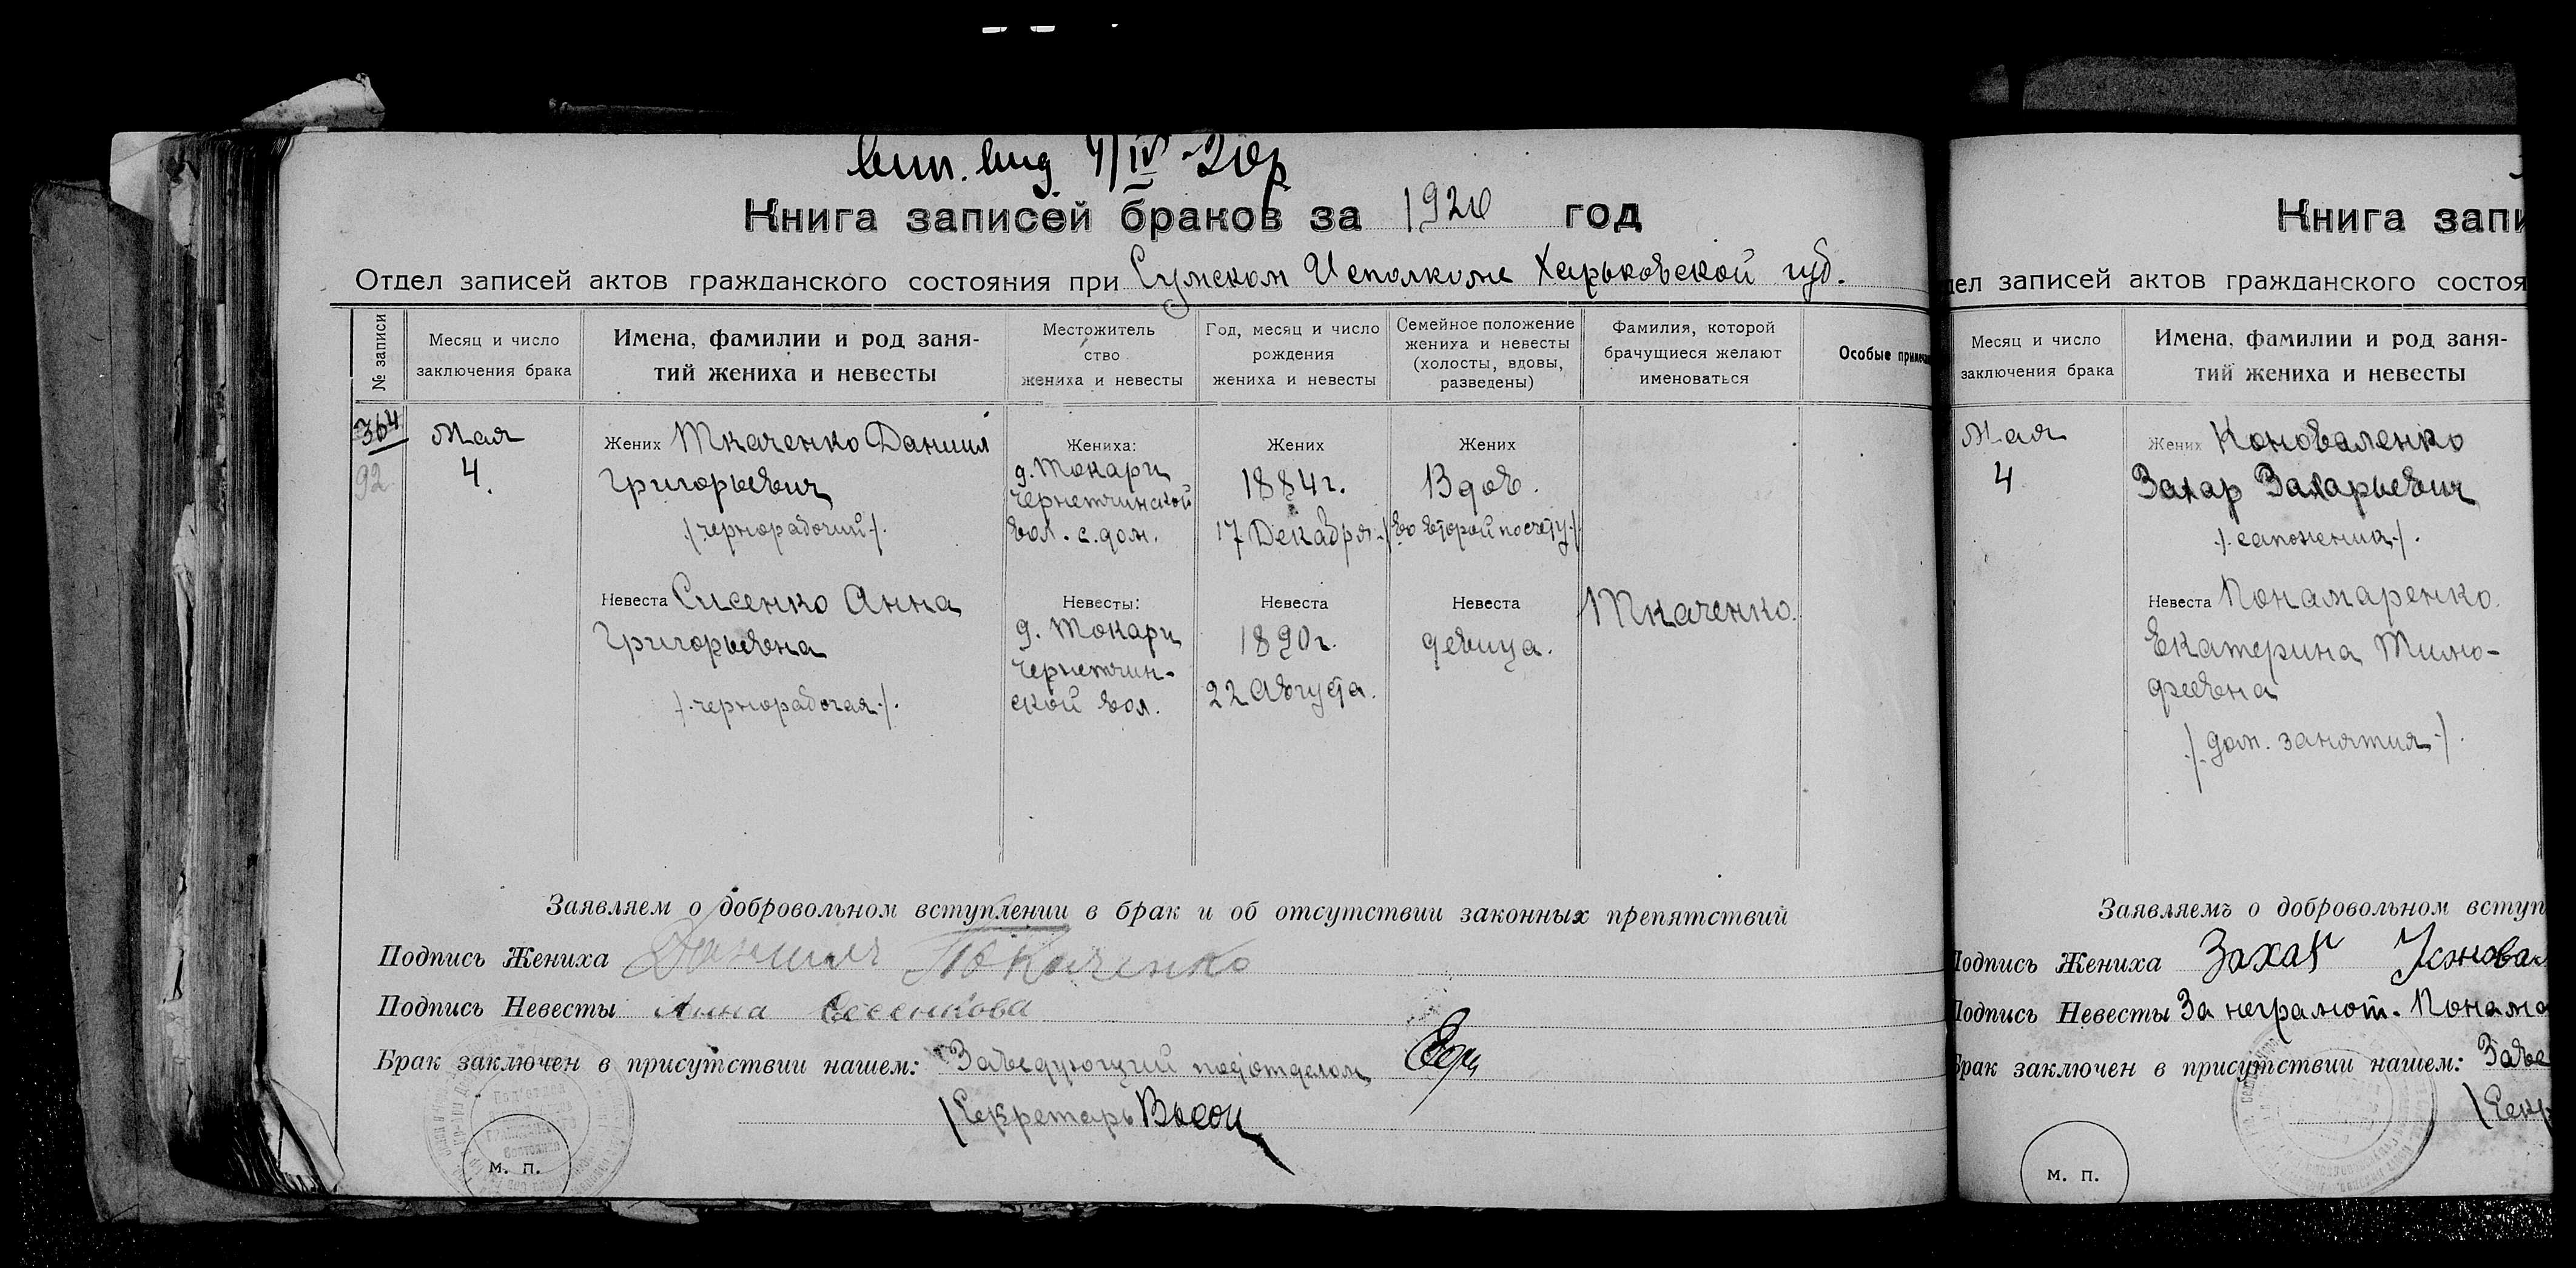 Вип. вид 4/IV-20р
Книга записей браков за 1920 год
Отдел записей актов гражданского состояния при Сумском Исполкоме Харьковской губ.
№ записи
Месяц и число
заключения брака
Имена, фамилии и род заня-
тий жениха и невесты
Местожитель
ство
жениха и невесты
Год, месяц и число
рождения
жениха и невесты
Семейное положение
жениха и невесты
(холосты, вдовы,
разведены)
Фамилия, которой
брачущиеся желают
именоваться
Особые примеча
364
92
Мая
4.
Жених Ткаченко Даниил
Григорьевич
/чернорабочий/.
Жениха:
д. Токари
Чернетчинской
вол. с. дом.
Жених
1884 г.
17 Декабря.
Жених
Вдов.
/во второй по счету/
Невеста Сисенко Анна
Григорьевна
/чернорабочая/.
Невесты:
д. Токари
Чернетчин-
ской вол.
Невеста
1890 г.
22 Августа.
Невеста
девица.
Ткаченко.
Заявляем о добровольном вступлении в брак и об отсутствии законных препятствий
Подпись Жениха Данилъ Ткаченко
Подпись Невесты Анна Сесенкова
Брак заключен в присутствии нашем: Заведующий подотделом
Секретарь
м. п.
Книга запи
дел записей актов гражданского состоя
Месяц и число
заключения брака
Имена, фамилии и род заня-
тий жениха и невесты
Мая
4
Жених Коноваленко
Захар Захарьевич
/. сапожник/.
Невеста Понамаренко
Екатерина Тимо-
феевна
/. дом. занятия/.
Заявляемъ о добровольном вступ
Подпись Жениха Захар Конова
Подпись Невесты За неграмот. Понама
Брак заключен в присутствии нашем: Заве
/Секр
м. п.